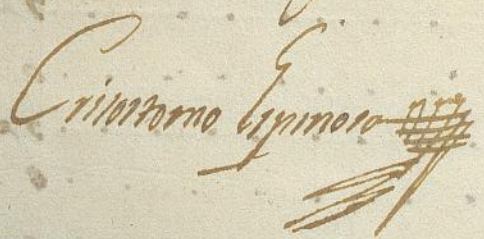 Crisostomo Espinosa